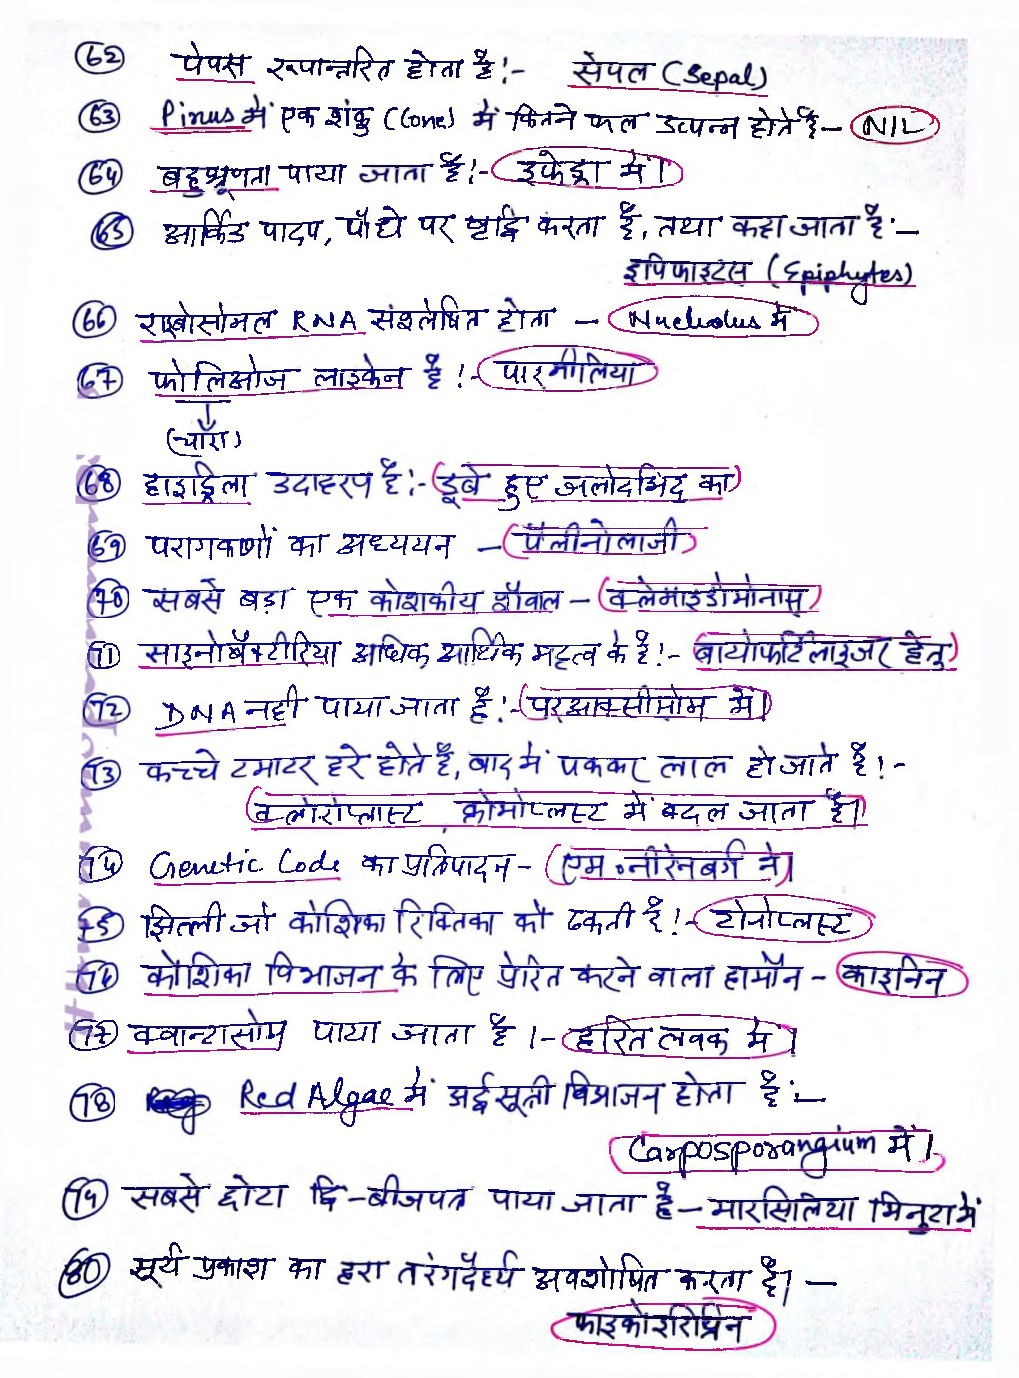 62 पेपस रूपान्तरित होता है!- सेपल (Sepal)
63 Pinus में एक शंकु (Cone) में कितने फल उत्पन्न होते है - NIL
64 बहुभ्रूणता पाया जाता है!- इफेड्रा में।
65 आर्किड पादप, पौधे पर वृद्धि करता है, तथा कहा जाता है:-
इपिफाइटस (Epiphytes)
66 राइबोसोमल RNA संश्लेषित होता - Nucleolus में
67 फोलिओज लाइकेन है!- पारमीलिया
(चारा)
68 हाइड्रिला उदाहरण है:- (डूबे हुए जलोदभिद् का)
69 परागकणों का अध्ययन - (पैलीनोलाजी)
70 सबसे बड़ा एक कोशकीय शैवाल - (क्लेमाइडोमोनास)
71 साइनोबैक्टीरिया अधिक आर्थिक महत्व के है!- (बायोफर्टिलाइजर हेतु)
72 DNA नही पाया जाता है!- (परआक्सीसोम में)
73 कच्चे टमाटर हरे होते है, बाद में पककर लाल हो जाते है!-
(क्लोरोप्लास्ट, क्रोमोप्लास्ट में बदल जाता है।
74 Genetic Code का प्रतिपादन - (एम॰ नीरेनबर्ग ने)
75 झिल्ली जो कोशिका रिक्तिका को ढकती है!- टोनोप्लास्ट
76 कोशिका विभाजन के लिए प्रेरित करने वाला हार्मोन - काइनिन
77 क्वान्टासोम पाया जाता है।- हरित लवक में।
78 Red Algae में अर्द्धसूत्री विभाजन होता है:-
Carposporangium में।
79 सबसे छोटा द्वि-बीजपत्र पाया जाता है - मारसिलिया मिनुटा में
80 सूर्य प्रकाश का हरा तरंगदैर्ध्य अवशोषित करता है। -
फाइकोइरिथ्रिन